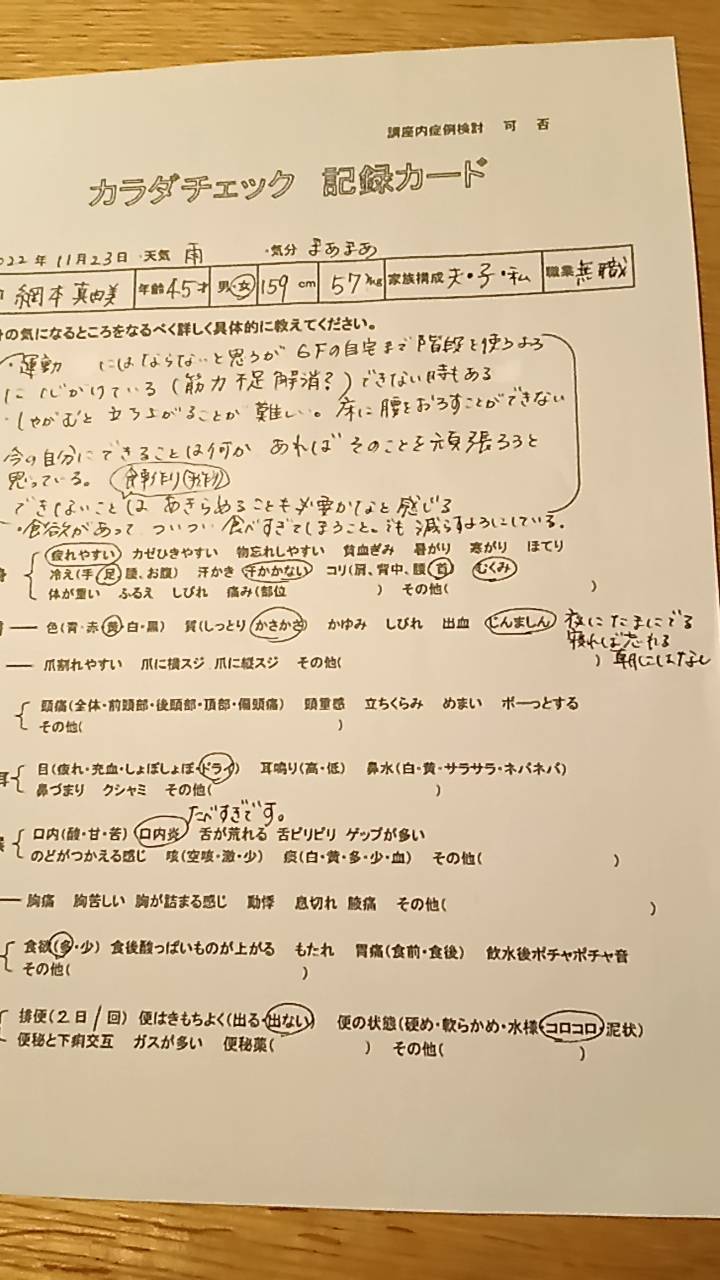 講座内症例検討 可 否
カラダチェック 記録カード
022年 11月23日 ・天気 雨 ・気分 まあまあ
網本 真由美 年齢 45才 男・女 159 cm 57 kg 家族構成 夫・子・私 職業 無職
の気になるところをなるべく詳しく具体的に教えてください。
・運動 にはならないと思うが 6Fの自宅まで階段を使うよう
に心がけている(筋力不足解消?)できない時もある
・しゃがむと立ち上がることが難しい。床に腰をおろすことができない
今の自分にできることは何か あればそのことを頑張ろうと
思っている。(食事作り)
できないことは あきらめることも必要かなと感じる
・食欲があって ついつい食べすぎてしまうこと。でも減らすようにしている。
疲れやすい カゼひきやすい 物忘れしやすい 貧血ぎみ 暑がり 寒がり ほてり
冷え(手・足・腰、お腹) 汗かき 汗かかない コリ(肩、背中、腰・首) むくみ
体が重い ふるえ しびれ 痛み(部位 ) その他( )
色(青・赤・黄・白・黒) 質(しっとり・かさかさ) かゆみ しびれ 出血 じんましん 夜にたまにでる
寝れば忘れる
朝にはなし
爪割れやすい 爪に横スジ 爪に縦スジ その他( )
頭痛(全体・前頭部・後頭部・頂部・偏頭痛) 頭重感 立ちくらみ めまい ボーっとする
その他( )
耳 目(疲れ・充血・しょぼしょぼ・ドライ) 耳鳴り(高・低) 鼻水(白・黄・サラサラ・ネバネバ)
鼻づまり クシャミ その他( )
たべすぎです。
口内(酸・甘・苦) 口内炎 舌が荒れる 舌ピリピリ ゲップが多い
のどがつかえる感じ 咳(空咳・激・少) 痰(白・黄・多・少・血) その他( )
胸痛 胸苦しい 胸が詰まる感じ 動悸 息切れ 腋痛 その他( )
食欲(多・少) 食後酸っぱいものが上がる もたれ 胃痛(食前・食後) 飲水後ポチャポチャ音
その他( )
排便(2日/回) 便はきもちよく(出る・出ない) 便の状態(硬め・軟らかめ・水様・コロコロ・泥状)
便秘と下痢交互 ガスが多い 便秘薬( ) その他( )